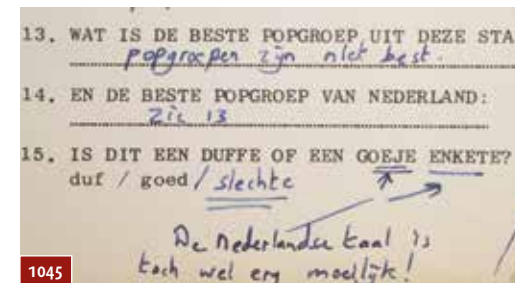 13. WAT IS DE BESTE POPGROEP UIT DEZE STA
popgroepen zijn niet best.
14. EN DE BESTE POPGROEP VAN NEDERLAND:
zie 13
15. IS DIT EEN DUFFE OF EEN GOEJE ENKETE?
duf / goed / slechte
De Nederlandse taal is
toch wel erg moeilijk!
1045